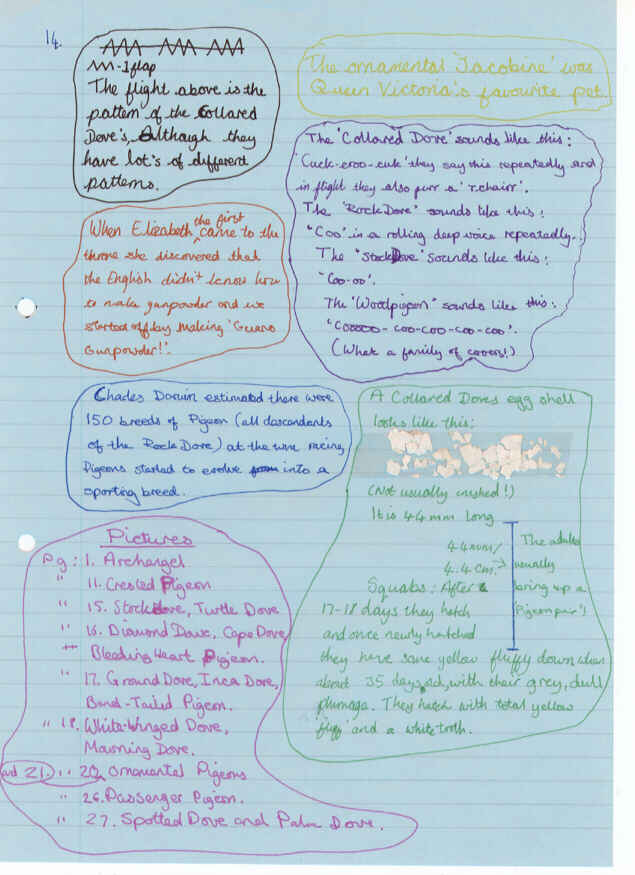 14.
ʍ - 1 flap
The flight above is the
pattern of the Collared
Dove's, Although they
have lot's of different
patterns.
The ornamental 'Jacobine' was
Queen Victoria's favourite pet.
The 'Collared Dove' sounds like this:
'Cuck-croo-cuk' they say this repeatedly and
in flight they also purr a 'rchairr'.
The 'Rock Dove' sounds like this:
"Coo" in a rolling deep voice repeatedly..
The "Stock Dove" sounds like this:
"Coo-oo".
The 'Woodpigeon" sounds like this:
"Cooooo- coo-coo-coo-coo".
(What a family of cooers!)
When Elizabeth the first came to the
throne she discovered that
the English didn't know how
to make gunpowder and we
started off by making 'Guano
Gunpowder!'.
Charles Darwin estimated there were
150 breeds of Pigeon (all descendants
of the Rock Dove) at the time racing
Pigeons started to evolve into a
sporting breed.
A Collared Doves egg shell
looks like this:
(Not usually crushed!)
It is 44mm long
44mm/
4.4cm.
The adults
usually
bring up a
'Pigeon pair')
Squabs: After
17-18 days they hatch
and once newly hatched
they have some yellow fluffy down when
about 35 days old, with their grey, dull
plumage. They hatch with total yellow
'fluff' and a white tooth.
Pictures
Pg: 1. Archangel
" 11. Crested Pigeon
" 15. Stock Dove, Turtle Dove
" 16. Diamond Dove, Cape Dove,
Bleeding Heart Pigeon.
" 17. Ground Dove, Inca Dove,
Band-Tailed Pigeon.
" 18. White-Winged Dove,
Mourning Dove.
and 21. " 20. Ornamental Pigeons
" 26. Passenger Pigeon.
" 27. Spotted Dove and Palm Dove.